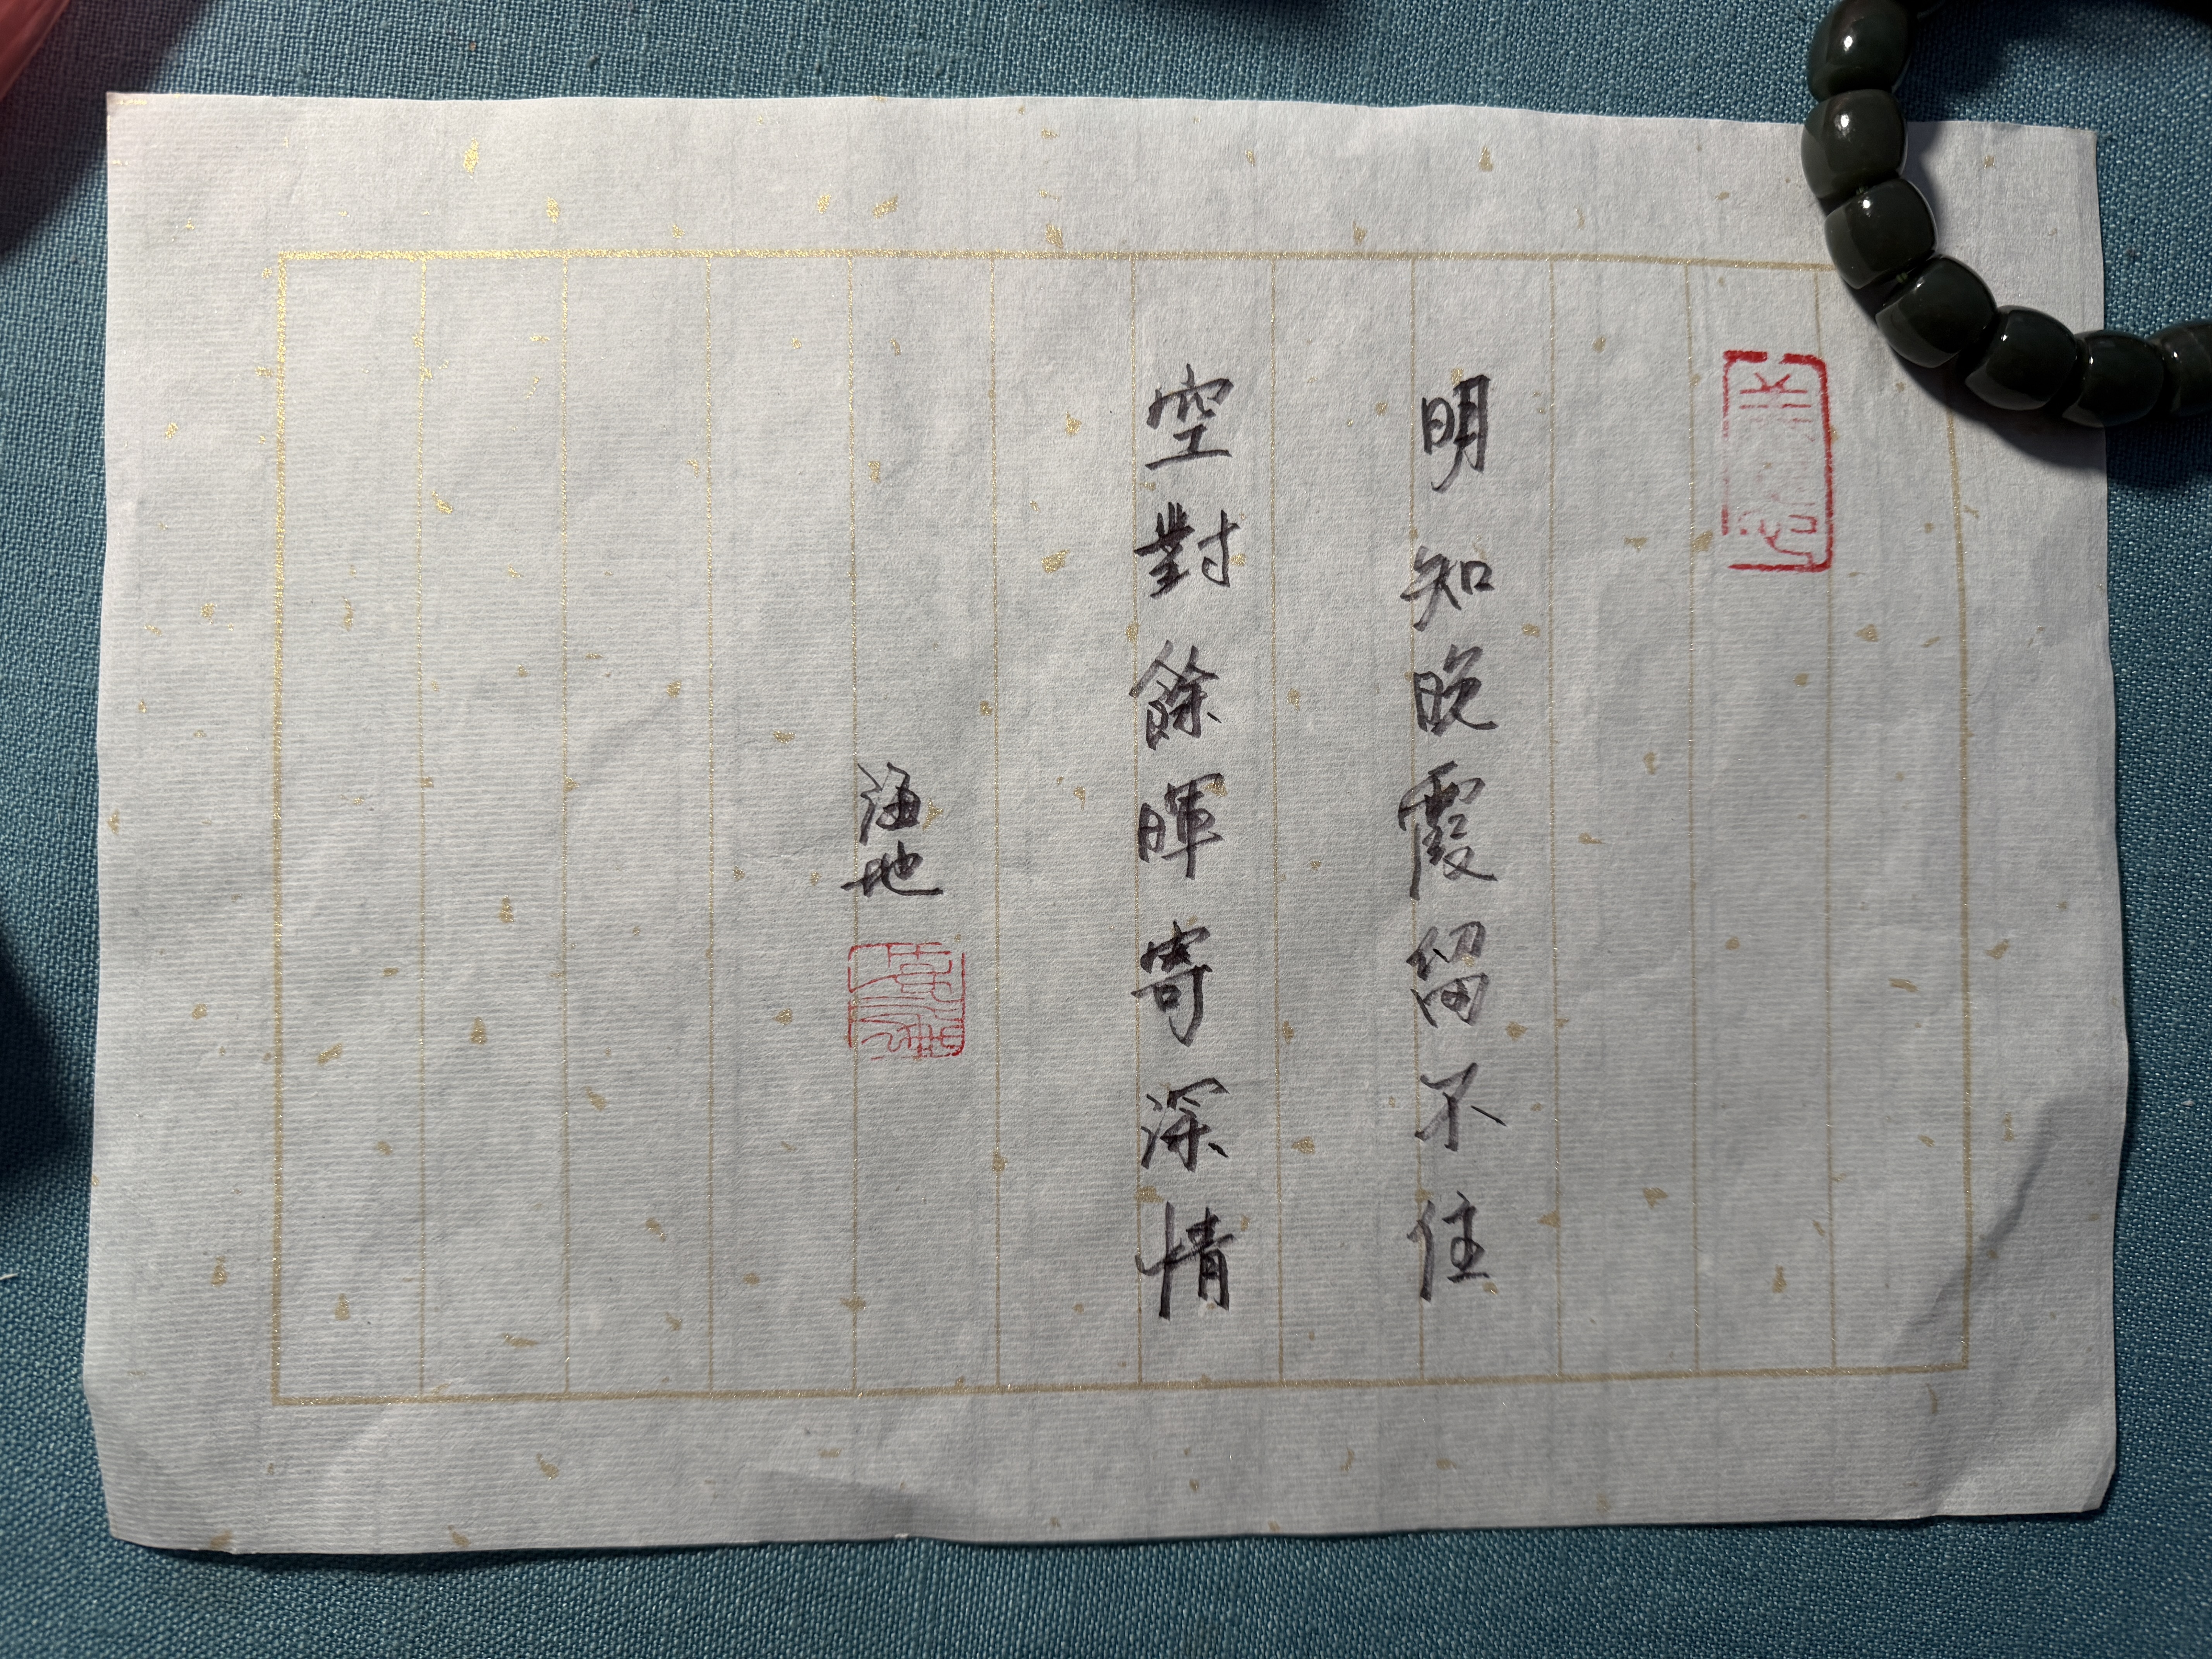 明知晚霞留不住
空對餘暉寄深情
海地